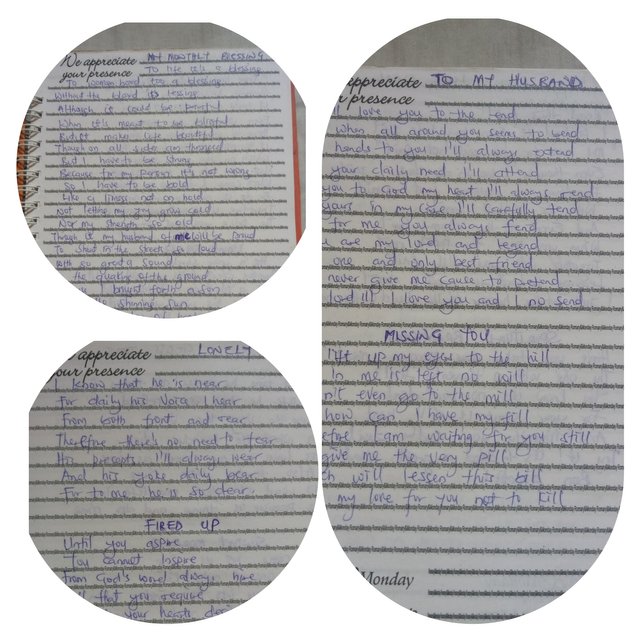 We appreciate
your presence
MY MONTHLY BLESSING
To life it's a blessing
To womanhood too a blessing
Without the blood it's lessing
Although it could be painful
When it's meant to be blissful
But it make life beautiful
Though on all sides am thronged
But I have to be strong
Because for my person it's not wrong
So I have to be bold
Like a lioness not on hold
Not letting my joy grow cold
Nor my strength so old
Though it my husband and me will be proud
To shout in the streets so loud
With so great a sound
the quaking of the ground
I brought forth a son
shining sun
appreciate
our presence
LONELY
I know that he is near
For daily his voice I hear
From both front and rear
Therefore there's no need to fear
His precepts I'll always wear
And his yoke daily bear
For to me he is so dear
FIRED UP
Until you aspire
You cannot inspire
From God's word always hire
that you require
your hearts
appreciate
r presence
TO MY HUSBAND
love you to the end
when all around you seems to bend
hands to you I'll always extend
your daily need I'll attend
you to God my heart I'll always rend
yours in my care I'll carefully tend
for me you always fend
u are my lord and legend
one and only best friend
never give me cause to pretend
lord!!! I love you and I no send
MISSING YOU
lift up my eyes to the hill
In me is left no will
n't even go to the mill
how can I have my fill
efore I am waiting for you still
give me the very pill
ch will lessen this bill
my love for you not to kill
Monday